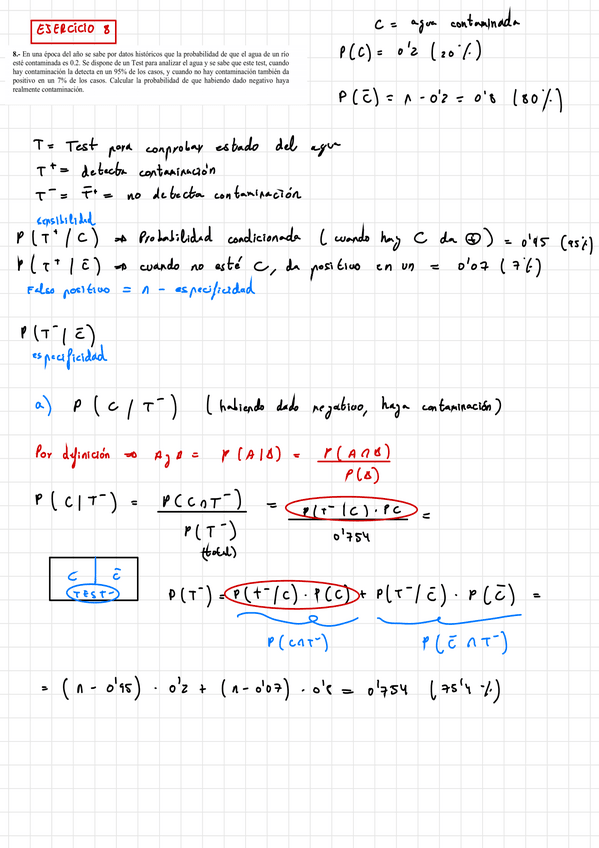 EJERCICIO 8
8.- En una época del año se sabe por datos históricos que la probabilidad de que el agua de un río
esté contaminada es 0.2. Se dispone de un Test para analizar el agua y se sabe que este test, cuando
hay contaminación la detecta en un 95% de los casos, y cuando no hay contaminación también da
positivo en un 7% de los casos. Calcular la probabilidad de que habiendo dado negativo haya
realmente contaminación.
C = agua contaminada
P(C) = 0'2 (20%)
P(C̄) = 1 - 0'2 = 0'8 (80%)
T = Test para comprobar estado del agua
T⁺ = detecta contaminación
T⁻ = T̄⁺ = no detecta contaminación
sensibilidad
P(T⁺/C) ⇒ Probabilidad condicionada (cuando hay C da ⊕) = 0'95 (95%)
P(T⁺/C̄) ⇒ cuando no esté C, da positivo en un = 0'07 (7%)
Falso positivo = 1 - especificidad
P(T⁻/C̄)
especificidad
a) P(C/T⁻) (habiendo dado negativo, haya contaminación)
Por definición ⇒ A y B = P(A|B) = P(A∩B) / P(B)
P(C|T⁻) = P(C∩T⁻) / P(T⁻) = P(T⁻|C)·PC / 0'754 =
(total)
C C̄
TEST-
P(T⁻) = P(T⁻/C)·P(C) + P(T⁻/C̄)·P(C̄) =
P(C∩T⁻) P(C̄∩T⁻)
= (1 - 0'95) · 0'2 + (1 - 0'07) · 0'8 = 0'754 (75'4 %)